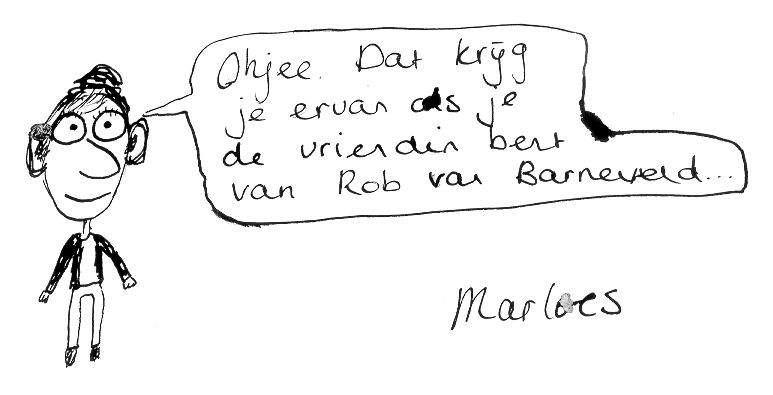 Ohjee. Dat krijg
je ervan als je
de vriendin bent
van Rob van Barneveld...
Marloes